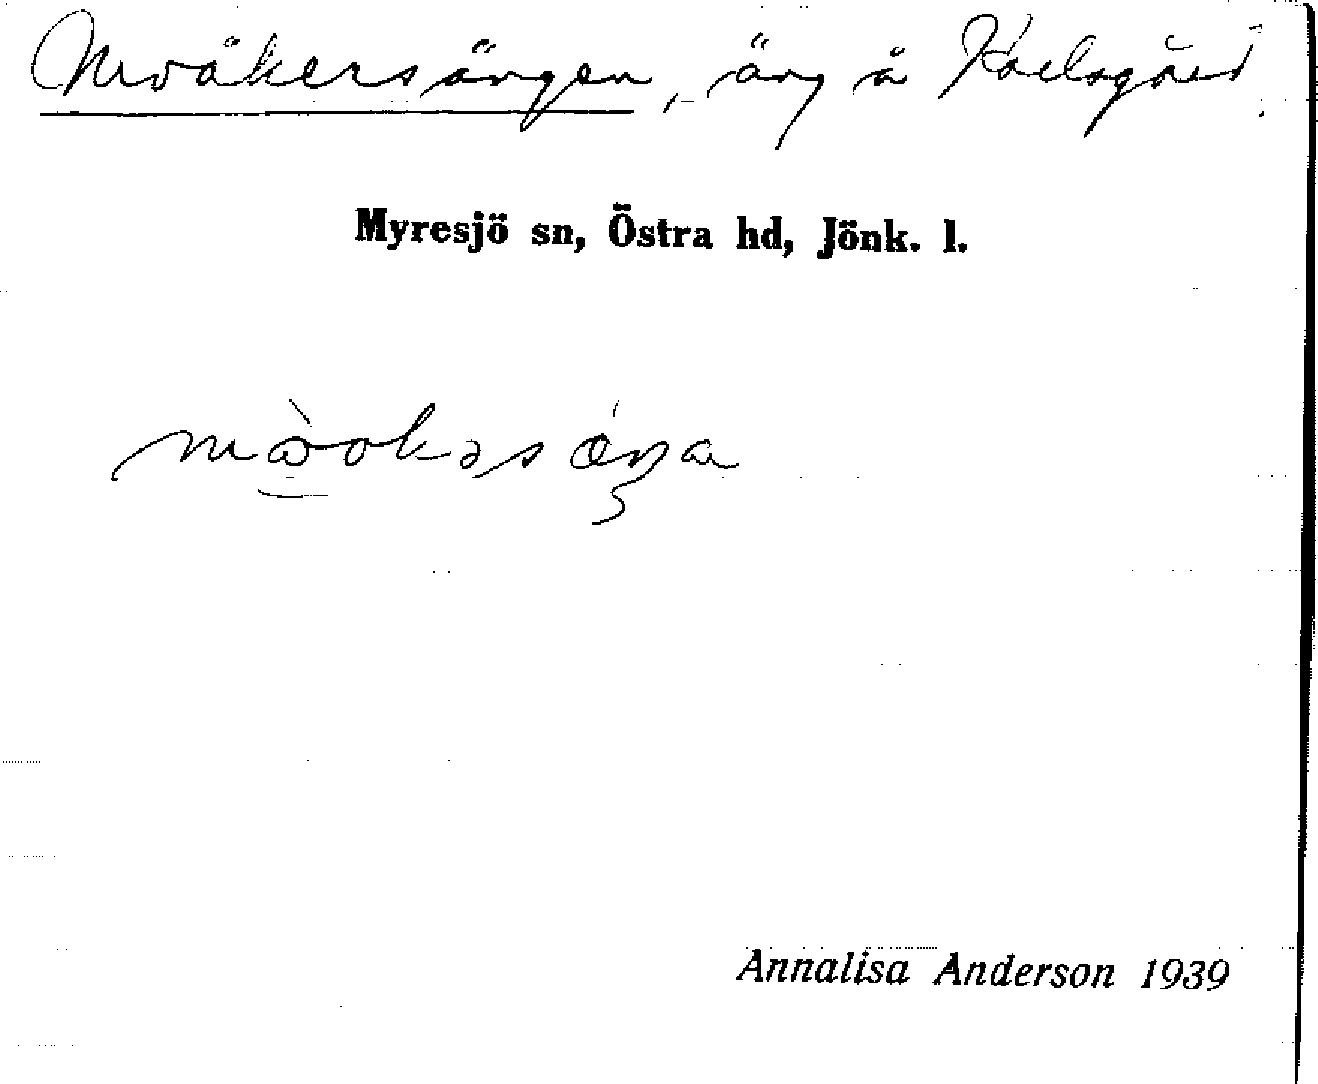 Moåkersängen, äng å Kaelsgård.
Myresjö sn, Östra hd, Jönk. l.
Annalisa Anderson 1939